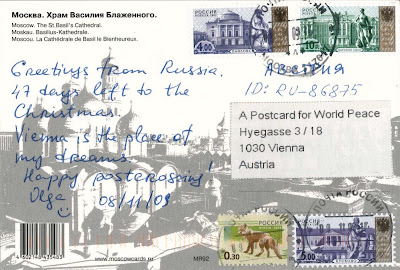 Москва. Храм Василия Блаженного.
Moscow. The St.Basil's Cathedral.
Moskau. Basilius-Kathedrale.
Moscou. La Cathédrale de Basil le Bienheureux.
Greetings from Russia.
47 days left to the
Christmas.
Vienna is the place of
my dreams.
Happy postcrossing!
Olga
08/11/09
АВСТРИЯ
ID: RU-86875
A Postcard for World Peace
Hyegasse 3 / 18
1030 Vienna
Austria
4.00
10.00
РОССИЯ
0.30
РОССИЯ
5.00
4602148435483
www.moscowcards.ru
MR92